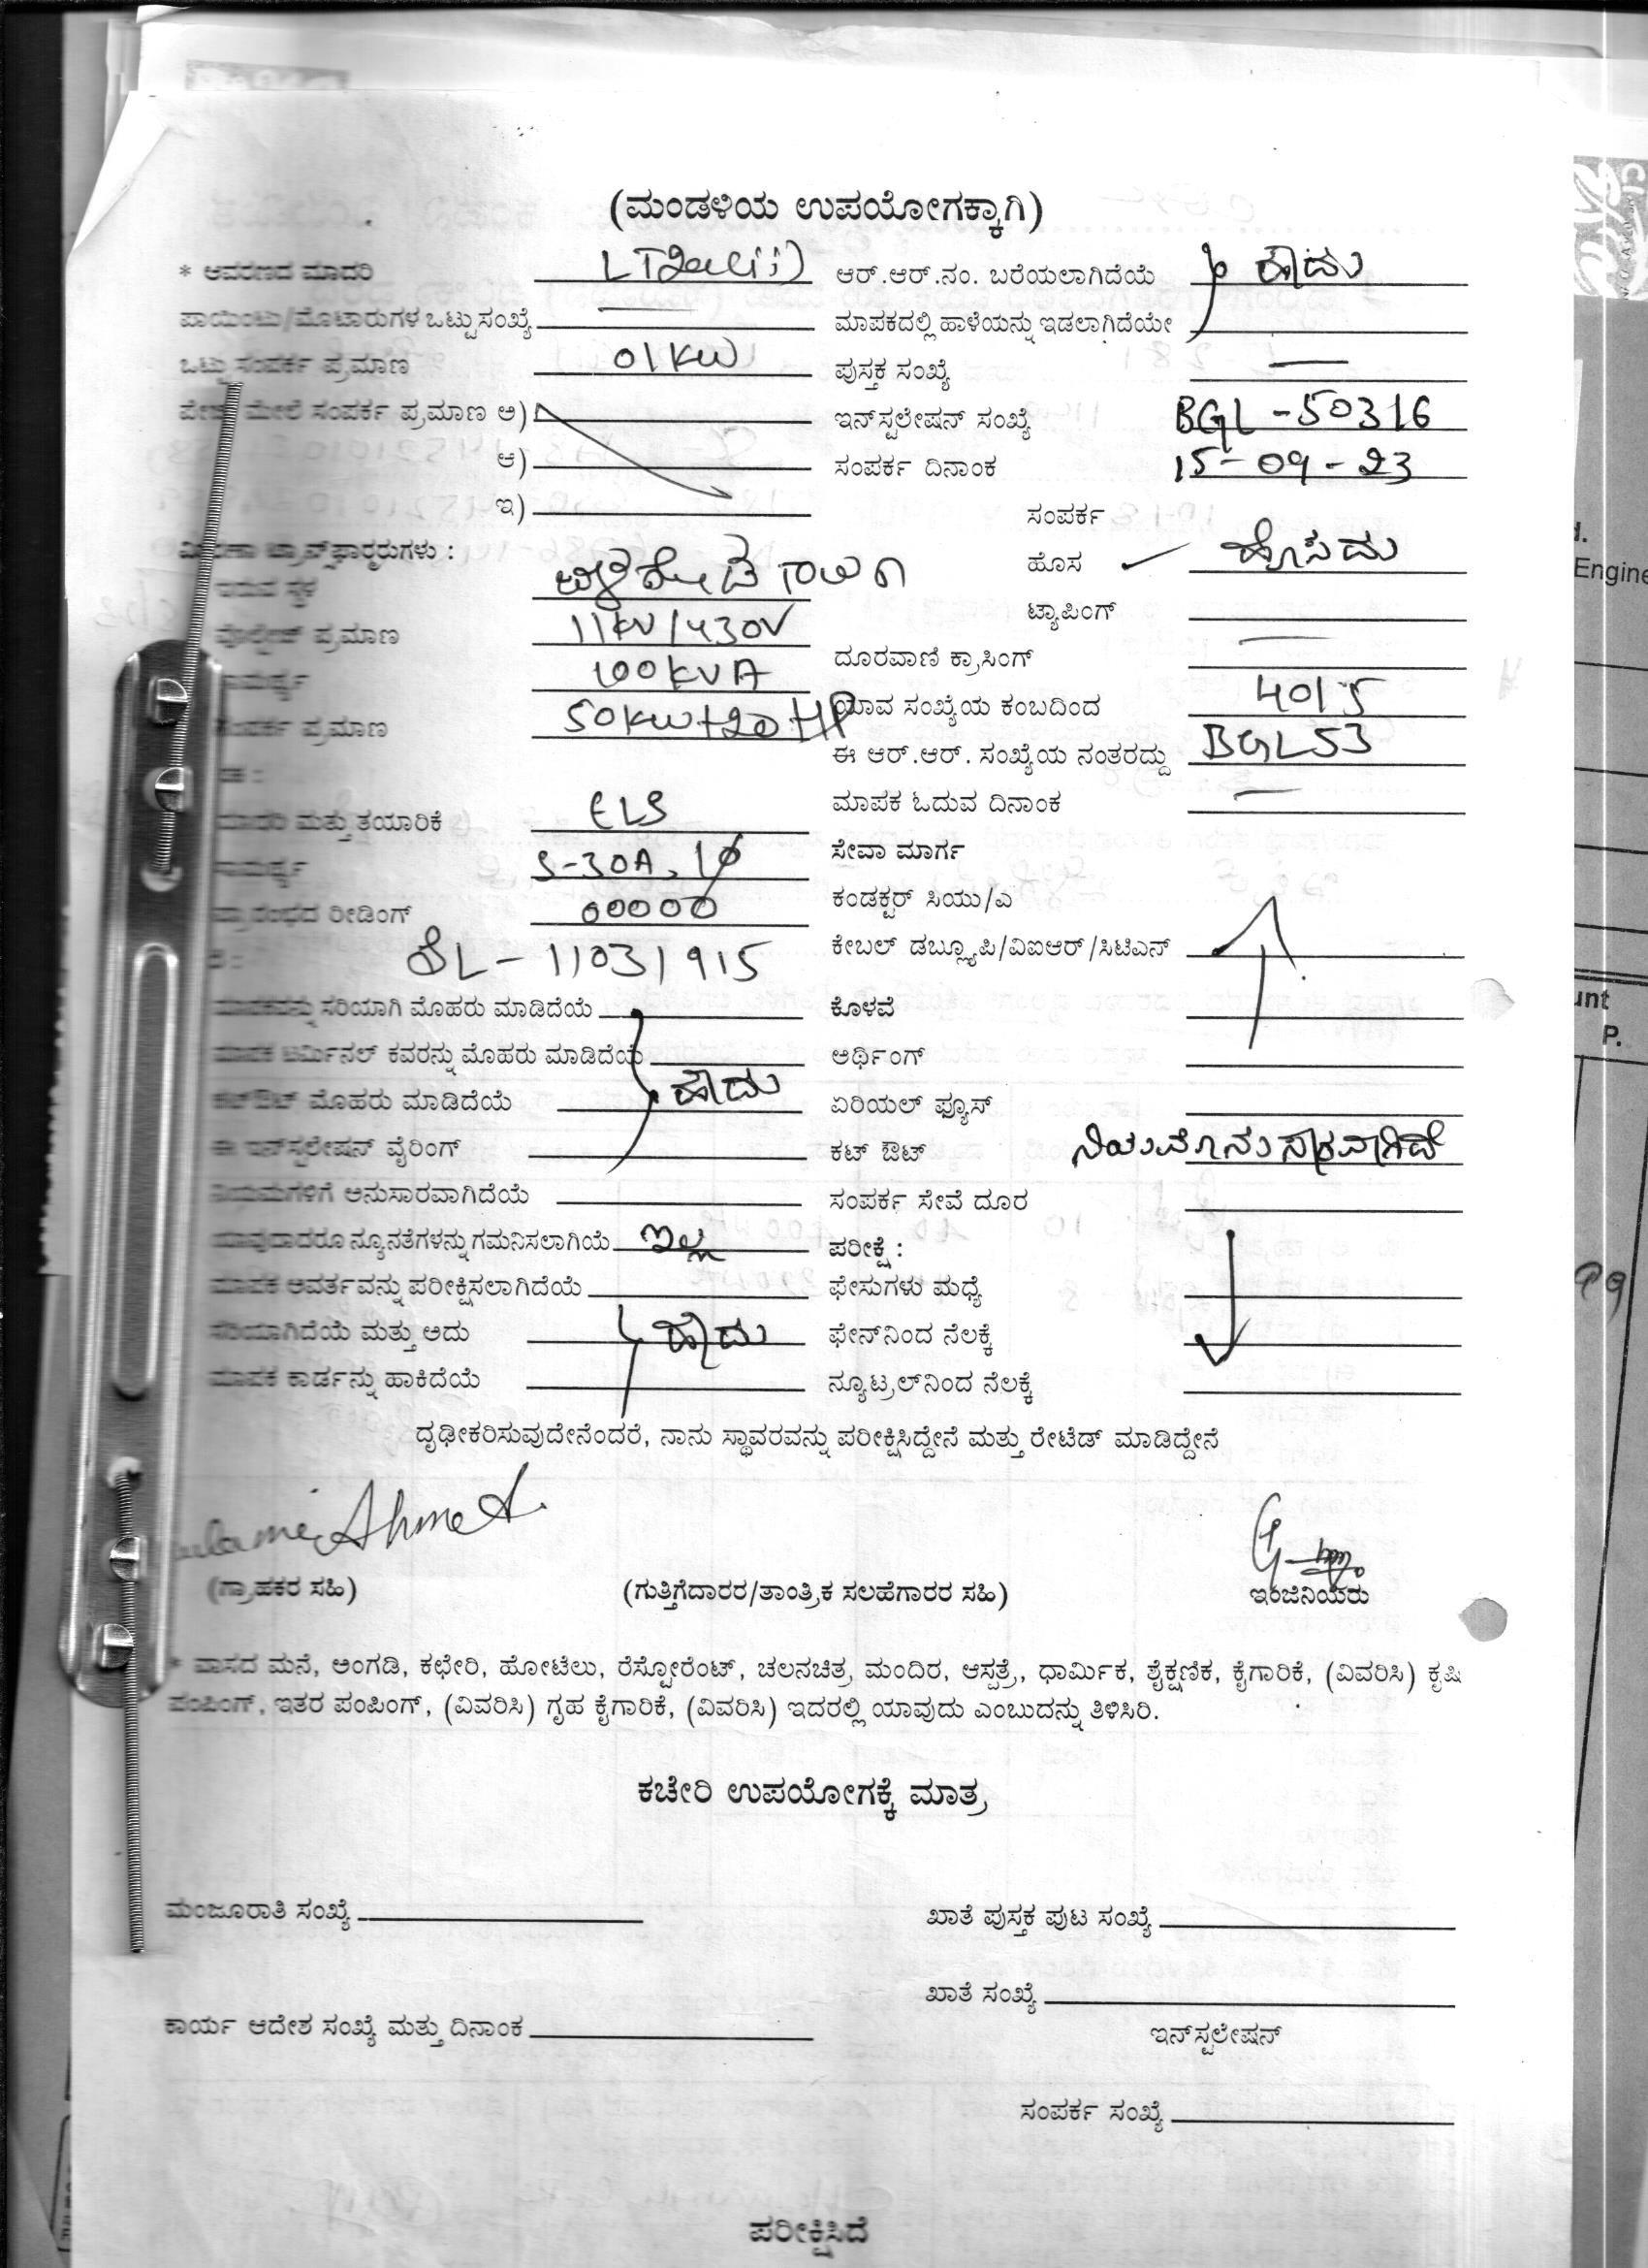 (ಮಂಡಳಿಯ ಉಪಯೋಗಕ್ಕಾಗಿ)
* ಆವರಣದ ಮಾದರಿ
ಆರ್.ಆರ್.ನಂ. ಬರೆಯಲಾಗಿದೆಯೆ ಹೌದು
ಪಾಯಿಂಟು/ಮೊಟಾರುಗಳ ಒಟ್ಟು ಸಂಖ್ಯೆ —
ಮಾಪಕದಲ್ಲಿ ಹಾಳೆಯನ್ನು ಇಡಲಾಗಿದೆಯೇ
ಒಟ್ಟು ಸಂಪರ್ಕ ಪ್ರಮಾಣ 01KW
ಪುಸ್ತಕ ಸಂಖ್ಯೆ —
ಮೇಲೆ ಸಂಪರ್ಕ ಪ್ರಮಾಣ ಅ)
ಇನ್‌ಸ್ಟಲೇಷನ್ ಸಂಖ್ಯೆ BGL-50316
ಆ)
ಸಂಪರ್ಕ ದಿನಾಂಕ 15-09-23
ಇ)
ಸಂಪರ್ಕ
ಟ್ರಾನ್ಸ್‌ಫಾರ್ಮರುಗಳು :
ಹೊಸ ✓ ಹೊಸದು
ಇರುವ ಸ್ಥಳ
ಟ್ಯಾಪಿಂಗ್
ವೋಲ್ಟೇಜ್ ಪ್ರಮಾಣ 11KV/430V
ದೂರವಾಣಿ ಕ್ರಾಸಿಂಗ್ —
ಸಾಮರ್ಥ್ಯ 100KVA
ಯಾವ ಸಂಖ್ಯೆಯ ಕಂಬದಿಂದ 40/5
ಸಂಪರ್ಕ ಪ್ರಮಾಣ 50KW+20HP
ಈ ಆರ್.ಆರ್. ಸಂಖ್ಯೆಯ ನಂತರದ್ದು BGL53
ಮಾಪಕ ಓದುವ ದಿನಾಂಕ —
ಮಾದರಿ ಮತ್ತು ತಯಾರಿಕೆ ELS
ಸೇವಾ ಮಾರ್ಗ
ಸಾಮರ್ಥ್ಯ 5-30A, 1ø
ಕಂಡಕ್ಟರ್ ಸಿಯು/ಎ
ಪ್ರಾರಂಭದ ರೀಡಿಂಗ್ 00000
ಕೇಬಲ್ ಡಬ್ಲ್ಯೂಪಿ/ವಿಐಆರ್/ಸಿಟಿಎನ್
11031915
ಮಾಪಕವನ್ನು ಸರಿಯಾಗಿ ಮೊಹರು ಮಾಡಿದೆಯೆ
ಕೊಳವೆ
ಮಾಪಕ ಟರ್ಮಿನಲ್ ಕವರನ್ನು ಮೊಹರು ಮಾಡಿದೆಯೆ
ಅರ್ಥಿಂಗ್
ಕಟ್‌ಔಟ್ ಮೊಹರು ಮಾಡಿದೆಯೆ ಹೌದು
ಏರಿಯಲ್ ಫ್ಯೂಸ್
ಈ ಇನ್‌ಸ್ಟಲೇಷನ್ ವೈರಿಂಗ್
ಕಟ್ ಔಟ್ ನಿಯಮಾನುಸಾರವಾಗಿದೆ
ನಿಯಮಗಳಿಗೆ ಅನುಸಾರವಾಗಿದೆಯೆ
ಸಂಪರ್ಕ ಸೇವೆ ದೂರ
ಯಾವುದಾದರೂ ನ್ಯೂನತೆಗಳನ್ನು ಗಮನಿಸಲಾಗಿಯೆ ಇಲ್ಲ
ಪರೀಕ್ಷೆ :
ಮಾಪಕ ಆವರ್ತವನ್ನು ಪರೀಕ್ಷಿಸಲಾಗಿದೆಯೆ
ಫೇಸುಗಳು ಮಧ್ಯೆ
ಸರಿಯಾಗಿದೆಯೆ ಮತ್ತು ಅದು ಹೌದು
ಫೇನ್‌ನಿಂದ ನೆಲಕ್ಕೆ
ಮಾಪಕ ಕಾರ್ಡನ್ನು ಹಾಕಿದೆಯೆ
ನ್ಯೂಟ್ರಲ್‌ನಿಂದ ನೆಲಕ್ಕೆ
ದೃಢೀಕರಿಸುವುದೇನೆಂದರೆ, ನಾನು ಸ್ಥಾವರವನ್ನು ಪರೀಕ್ಷಿಸಿದ್ದೇನೆ ಮತ್ತು ರೇಟೆಡ್ ಮಾಡಿದ್ದೇನೆ
Ahmed
(ಗ್ರಾಹಕರ ಸಹಿ) (ಗುತ್ತಿಗೆದಾರರ/ತಾಂತ್ರಿಕ ಸಲಹೆಗಾರರ ಸಹಿ) ಇಂಜಿನಿಯರು
* ವಾಸದ ಮನೆ, ಅಂಗಡಿ, ಕಛೇರಿ, ಹೋಟೆಲು, ರೆಸ್ಟೋರೆಂಟ್, ಚಲನಚಿತ್ರ ಮಂದಿರ, ಆಸ್ಪತ್ರೆ, ಧಾರ್ಮಿಕ, ಶೈಕ್ಷಣಿಕ, ಕೈಗಾರಿಕೆ, (ವಿವರಿಸಿ) ಕೃಷಿ
ಪಂಪಿಂಗ್, ಇತರ ಪಂಪಿಂಗ್, (ವಿವರಿಸಿ) ಗೃಹ ಕೈಗಾರಿಕೆ, (ವಿವರಿಸಿ) ಇದರಲ್ಲಿ ಯಾವುದು ಎಂಬುದನ್ನು ತಿಳಿಸಿರಿ.
ಕಚೇರಿ ಉಪಯೋಗಕ್ಕೆ ಮಾತ್ರ
ಮಂಜೂರಾತಿ ಸಂಖ್ಯೆ
ಖಾತೆ ಪುಸ್ತಕ ಪುಟ ಸಂಖ್ಯೆ
ಖಾತೆ ಸಂಖ್ಯೆ
ಕಾರ್ಯ ಆದೇಶ ಸಂಖ್ಯೆ ಮತ್ತು ದಿನಾಂಕ
ಇನ್‌ಸ್ಟಲೇಷನ್
ಸಂಪರ್ಕ ಸಂಖ್ಯೆ
ಪರೀಕ್ಷಿಸಿದೆ